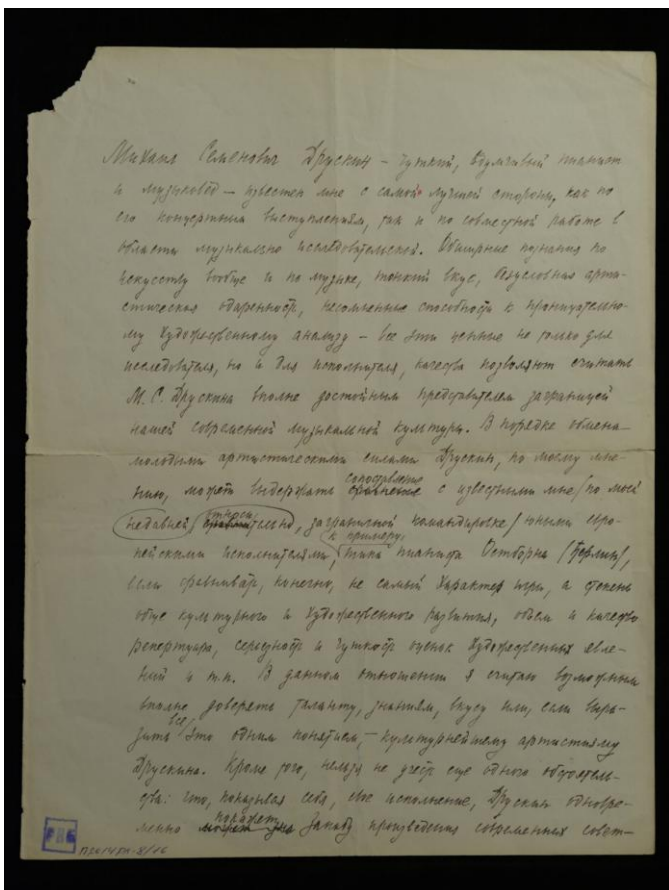 Михаил Семенович Друскин – чуткий, вдумчивый пианист
и музыковед – известен мне с самой лучшей стороны, как по
его концертным выступлениям, так и по совместной работе в
области музыкально исследовательской. Обширные познания по
искусству вообще и по музыке, тонкий вкус, безусловная арти-
стическая одаренность, несомненные способности к проницательно-
му художественному анализу – все эти ценные не только для
исследователя, но и для исполнителя, качества позволяют считать
М. С. Друскина вполне достойным представителем заграницей
нашей современной музыкальной культуры. В порядке обмена
молодыми артистическими силами Друскин, по моему мне-
сопоставление
нию, может выдержать сравнение с известными мне /по моей
относи
недавней тельно, заграничной командировке/ юными евро-
к примеру,
пейскими исполнителями, типа пианиста Остборна /Берлин/,
если сравнивать, конечно, не самый характер игры, а степень
обще культурного и художественного развития, объем и качество
репертуара, серьезность и чуткость оценок художественных явле-
ний и т.п. В данном отношении я считаю возможным
вполне доверять таланту, знаниям, вкусу или, если выра-
все
зить это одним понятием, – культурнейшему артистизму
Друскина. Кроме того, нельзя не учесть еще одного обстоятель-
ства: что, показывая себя, свое исполнение, Друскин одновре-
менно может Западу произведения современных совет-
РВ